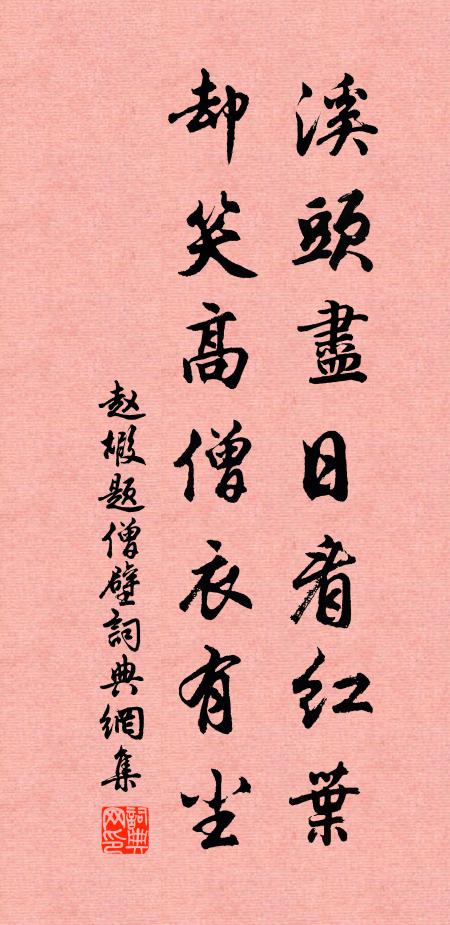 溪頭盡日看紅葉
却笑高僧衣有尘
赵嘏题僧壁詞典網集
詞典网印